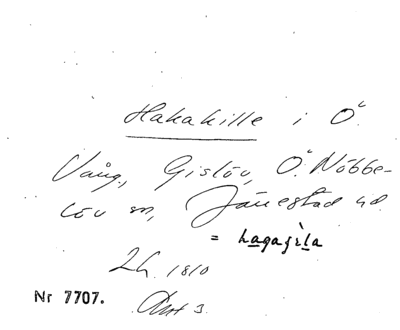 Hakakille i Ö.
Vång, Gislöv, Ö. Nöbbe-
löv sn, Järrestad hd.
= hagagi̇̀la
Lh. 1810
Akt 3.
Nr 7707.